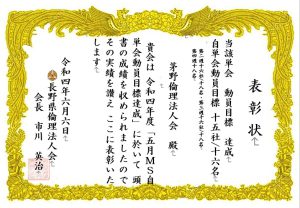 表彰状
当該単会 動員目標 達成
自単会動員目標 十五社/十六名
茅野倫理法人会 殿
貴会は 令和四年度 「五月MS自
単会動員目標達成」に於いて 頭
書の成績を収められましたので
その実績を讃え ここに表彰いた
します
令和四年六月六日
長野県倫理法人会
会長 市川 英治